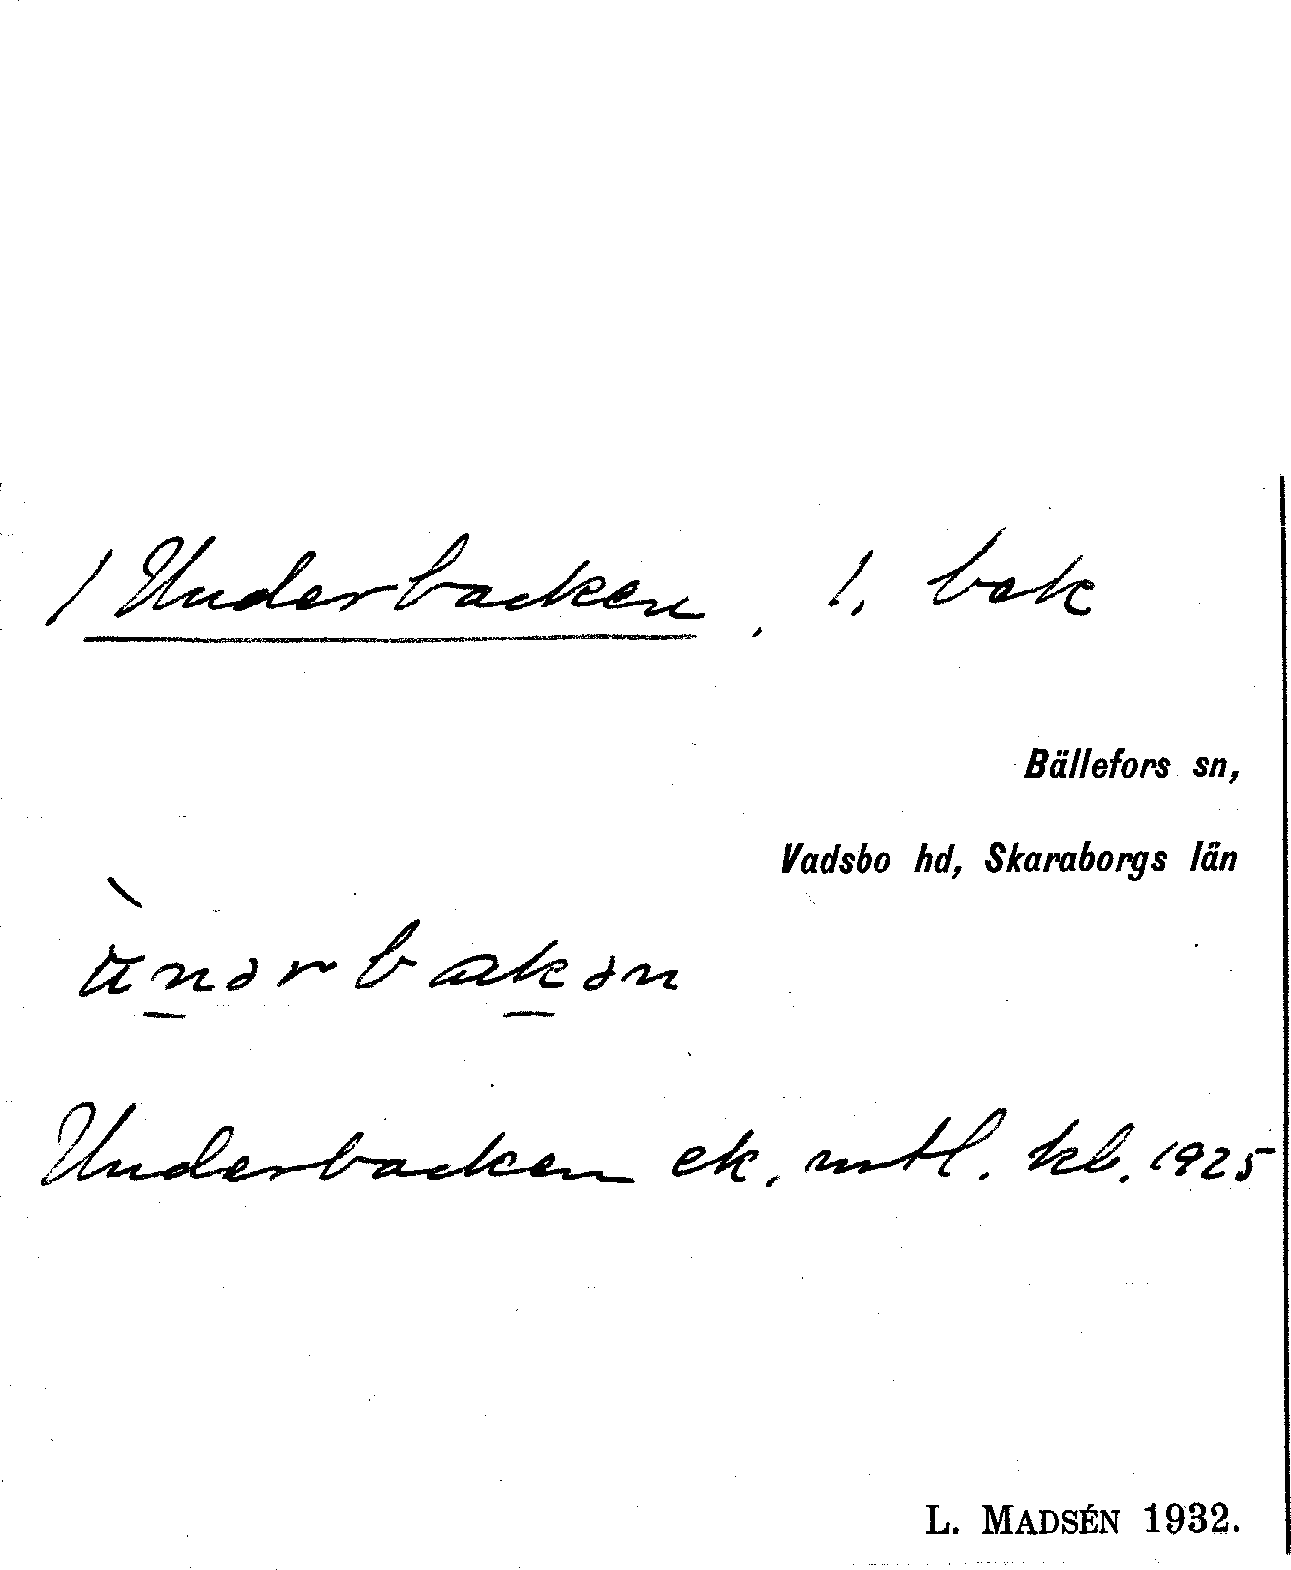 / Underbacken, l. bak
Bällefors sn,
Vadsbo hd, Skaraborgs län
ùn̠ərbak̠ən
Underbacken ek. mtl. kb. 1925
L. MADSÉN 1932.